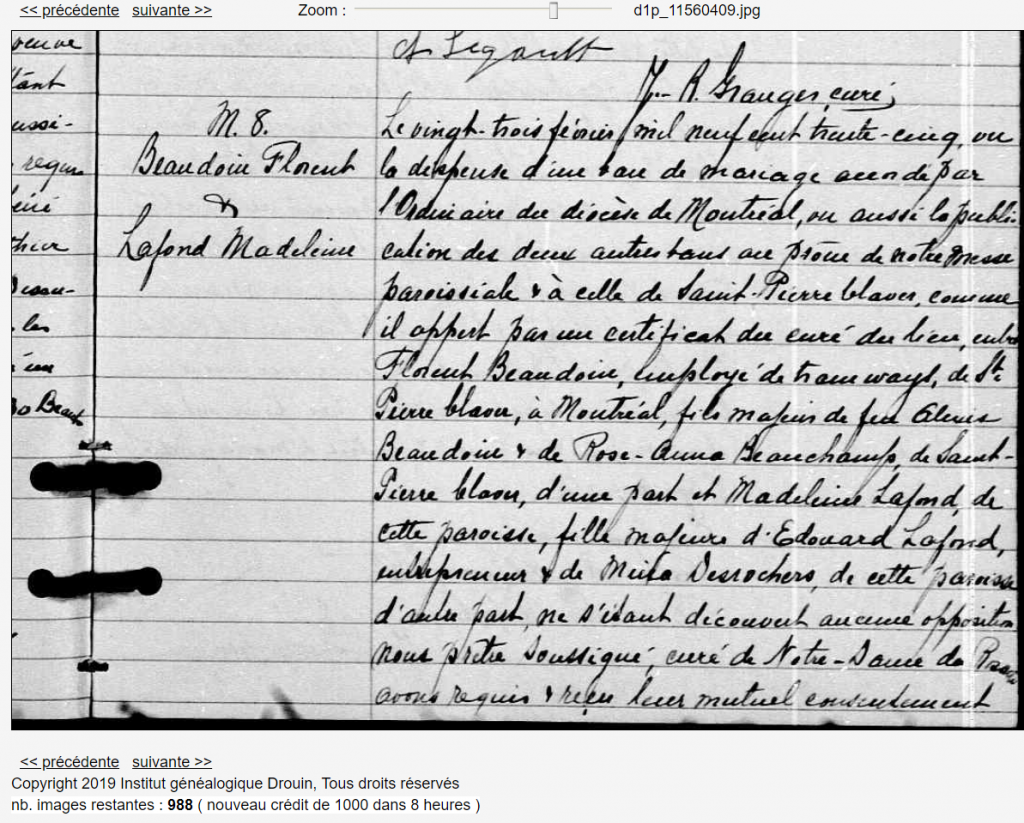 << précédente suivante >> Zoom : d1p_11560409.jpg
A Legault
J.- R. Granger, curé;
M. 8.
Beaudoin Florent
&
Lafond Madeleine
Le vingt-trois février mil neuf cent trente-cinq, vu
la dispense d'un ban de mariage accordé par
l'Ordinaire du diocèse de Montréal, vu aussi la publi-
cation des deux autres bans au prône de notre messe
paroissiale & à celle de Saint-Pierre Claver, comme
il appert par un certificat du curé du lieu, entre
Florent Beaudoin, employé de tramways, de St.
Pierre Claver, à Montréal, fils majeur de feu Alexis
Beaudoin & de Rose-Anna Beauchamp, de Saint-
Pierre Claver, d'une part et Madeleine Lafond, de
cette paroisse, fille majeure d'Edouard Lafond,
entrepreneur & de Desrochers, de cette paroisse
d'autre part, ne s'étant découvert aucune opposition
nous prêtre soussigné, curé de Notre-Dame du
avons requis & reçu leur mutuel consentement
veuve
tant
aussi-
regis
thur
les
<< précédente suivante >>
Copyright 2019 Institut généalogique Drouin, Tous droits réservés
nb. images restantes : 988 ( nouveau crédit de 1000 dans 8 heures )